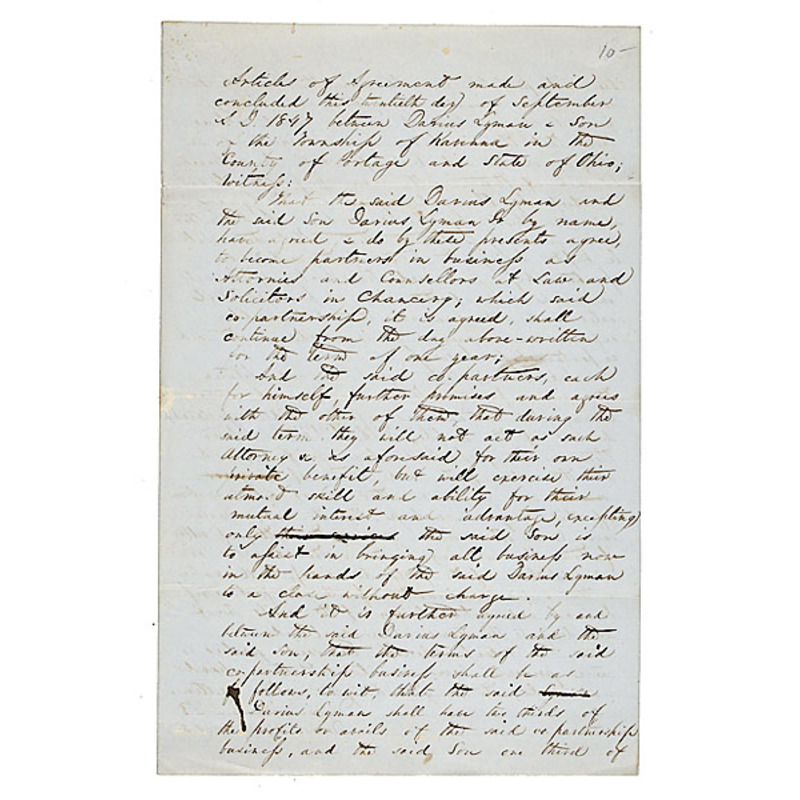 10-
Articles of Agreement made and
concluded this twentieth day of September
A D 1847 between Darius Lyman & Son
of the Township of Ravenna in the
County of Portage and State of Ohio;
Witness:
That the said Darius Lyman and
the said Son Darius Lyman Jr by name,
have agreed & do by these presents agree,
to become partners in business as
Attornies and Counsellors at Law and
Solicitors in Chancery; which said
co-partnership, it is agreed, shall
continue from the day above-written
for the term of one year;
And the said co-partners, each
for himself, further promises and agrees
with the other of them, that during the
said term they will not act as such
Attorney &c as aforesaid for their own
private benefit, but will exercise their
utmost skill and ability for their
mutual interest and advantage, excepting
only the said Son is
to assist in bringing all business now
in the hands of the said Darius Lyman
to a close without charge.
And it is further agreed by and
between the said Darius Lyman and the
said Son, that the terms of the said
co-partnership business shall be as
follows, to wit, that the said Lyman
Darius Lyman shall have two thirds of
the profits or avails of the said co-partnership
business, and the said Son one third of